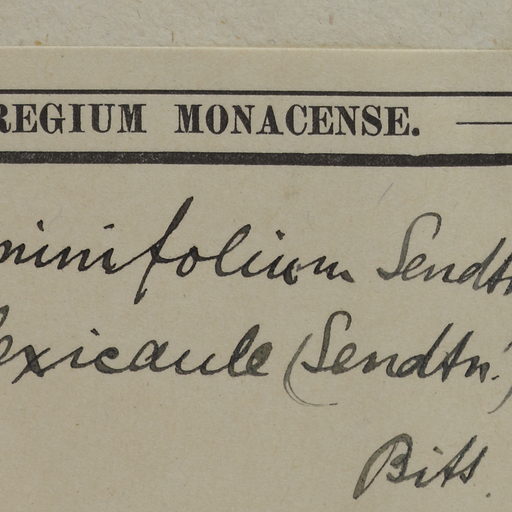 REGIUM MONACENSE.
minifolium Sendtn
lexicaule (Sendtn.)
Bitt.